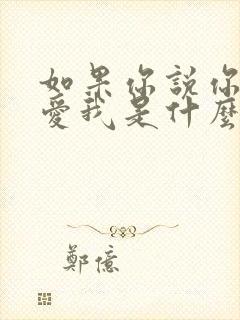 如果你説你
愛我是什麼
鄭億